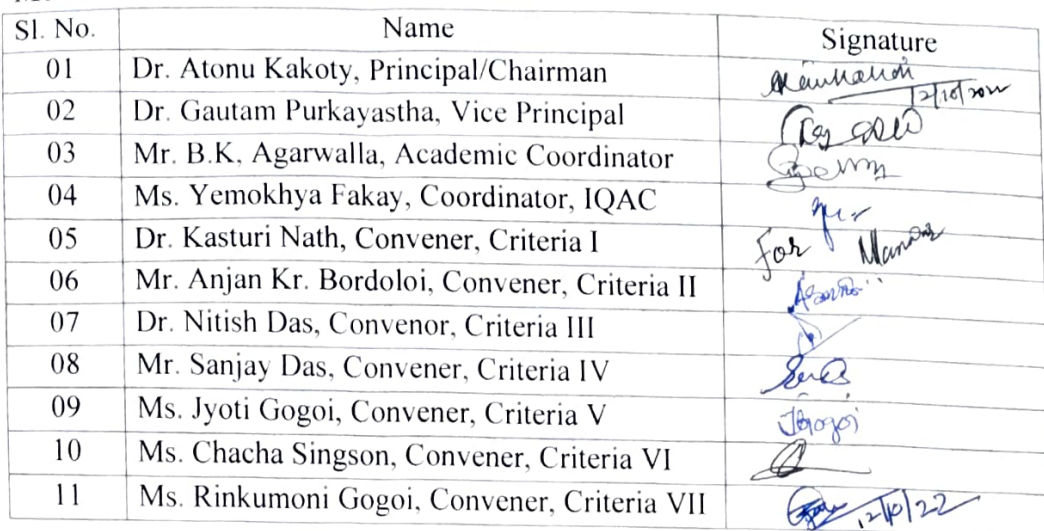 Sl. No. Name Signature
01 Dr. Atonu Kakoty, Principal/Chairman
12/10/2022
02 Dr. Gautam Purkayastha, Vice Principal
03 Mr. B.K, Agarwalla, Academic Coordinator
04 Ms. Yemokhya Fakay, Coordinator, IQAC
05 Dr. Kasturi Nath, Convener, Criteria I For
06 Mr. Anjan Kr. Bordoloi, Convener, Criteria II
07 Dr. Nitish Das, Convenor, Criteria III
08 Mr. Sanjay Das, Convener, Criteria IV
09 Ms. Jyoti Gogoi, Convener, Criteria V JGogoi
10 Ms. Chacha Singson, Convener, Criteria VI
11 Ms. Rinkumoni Gogoi, Convener, Criteria VII 12/10/22